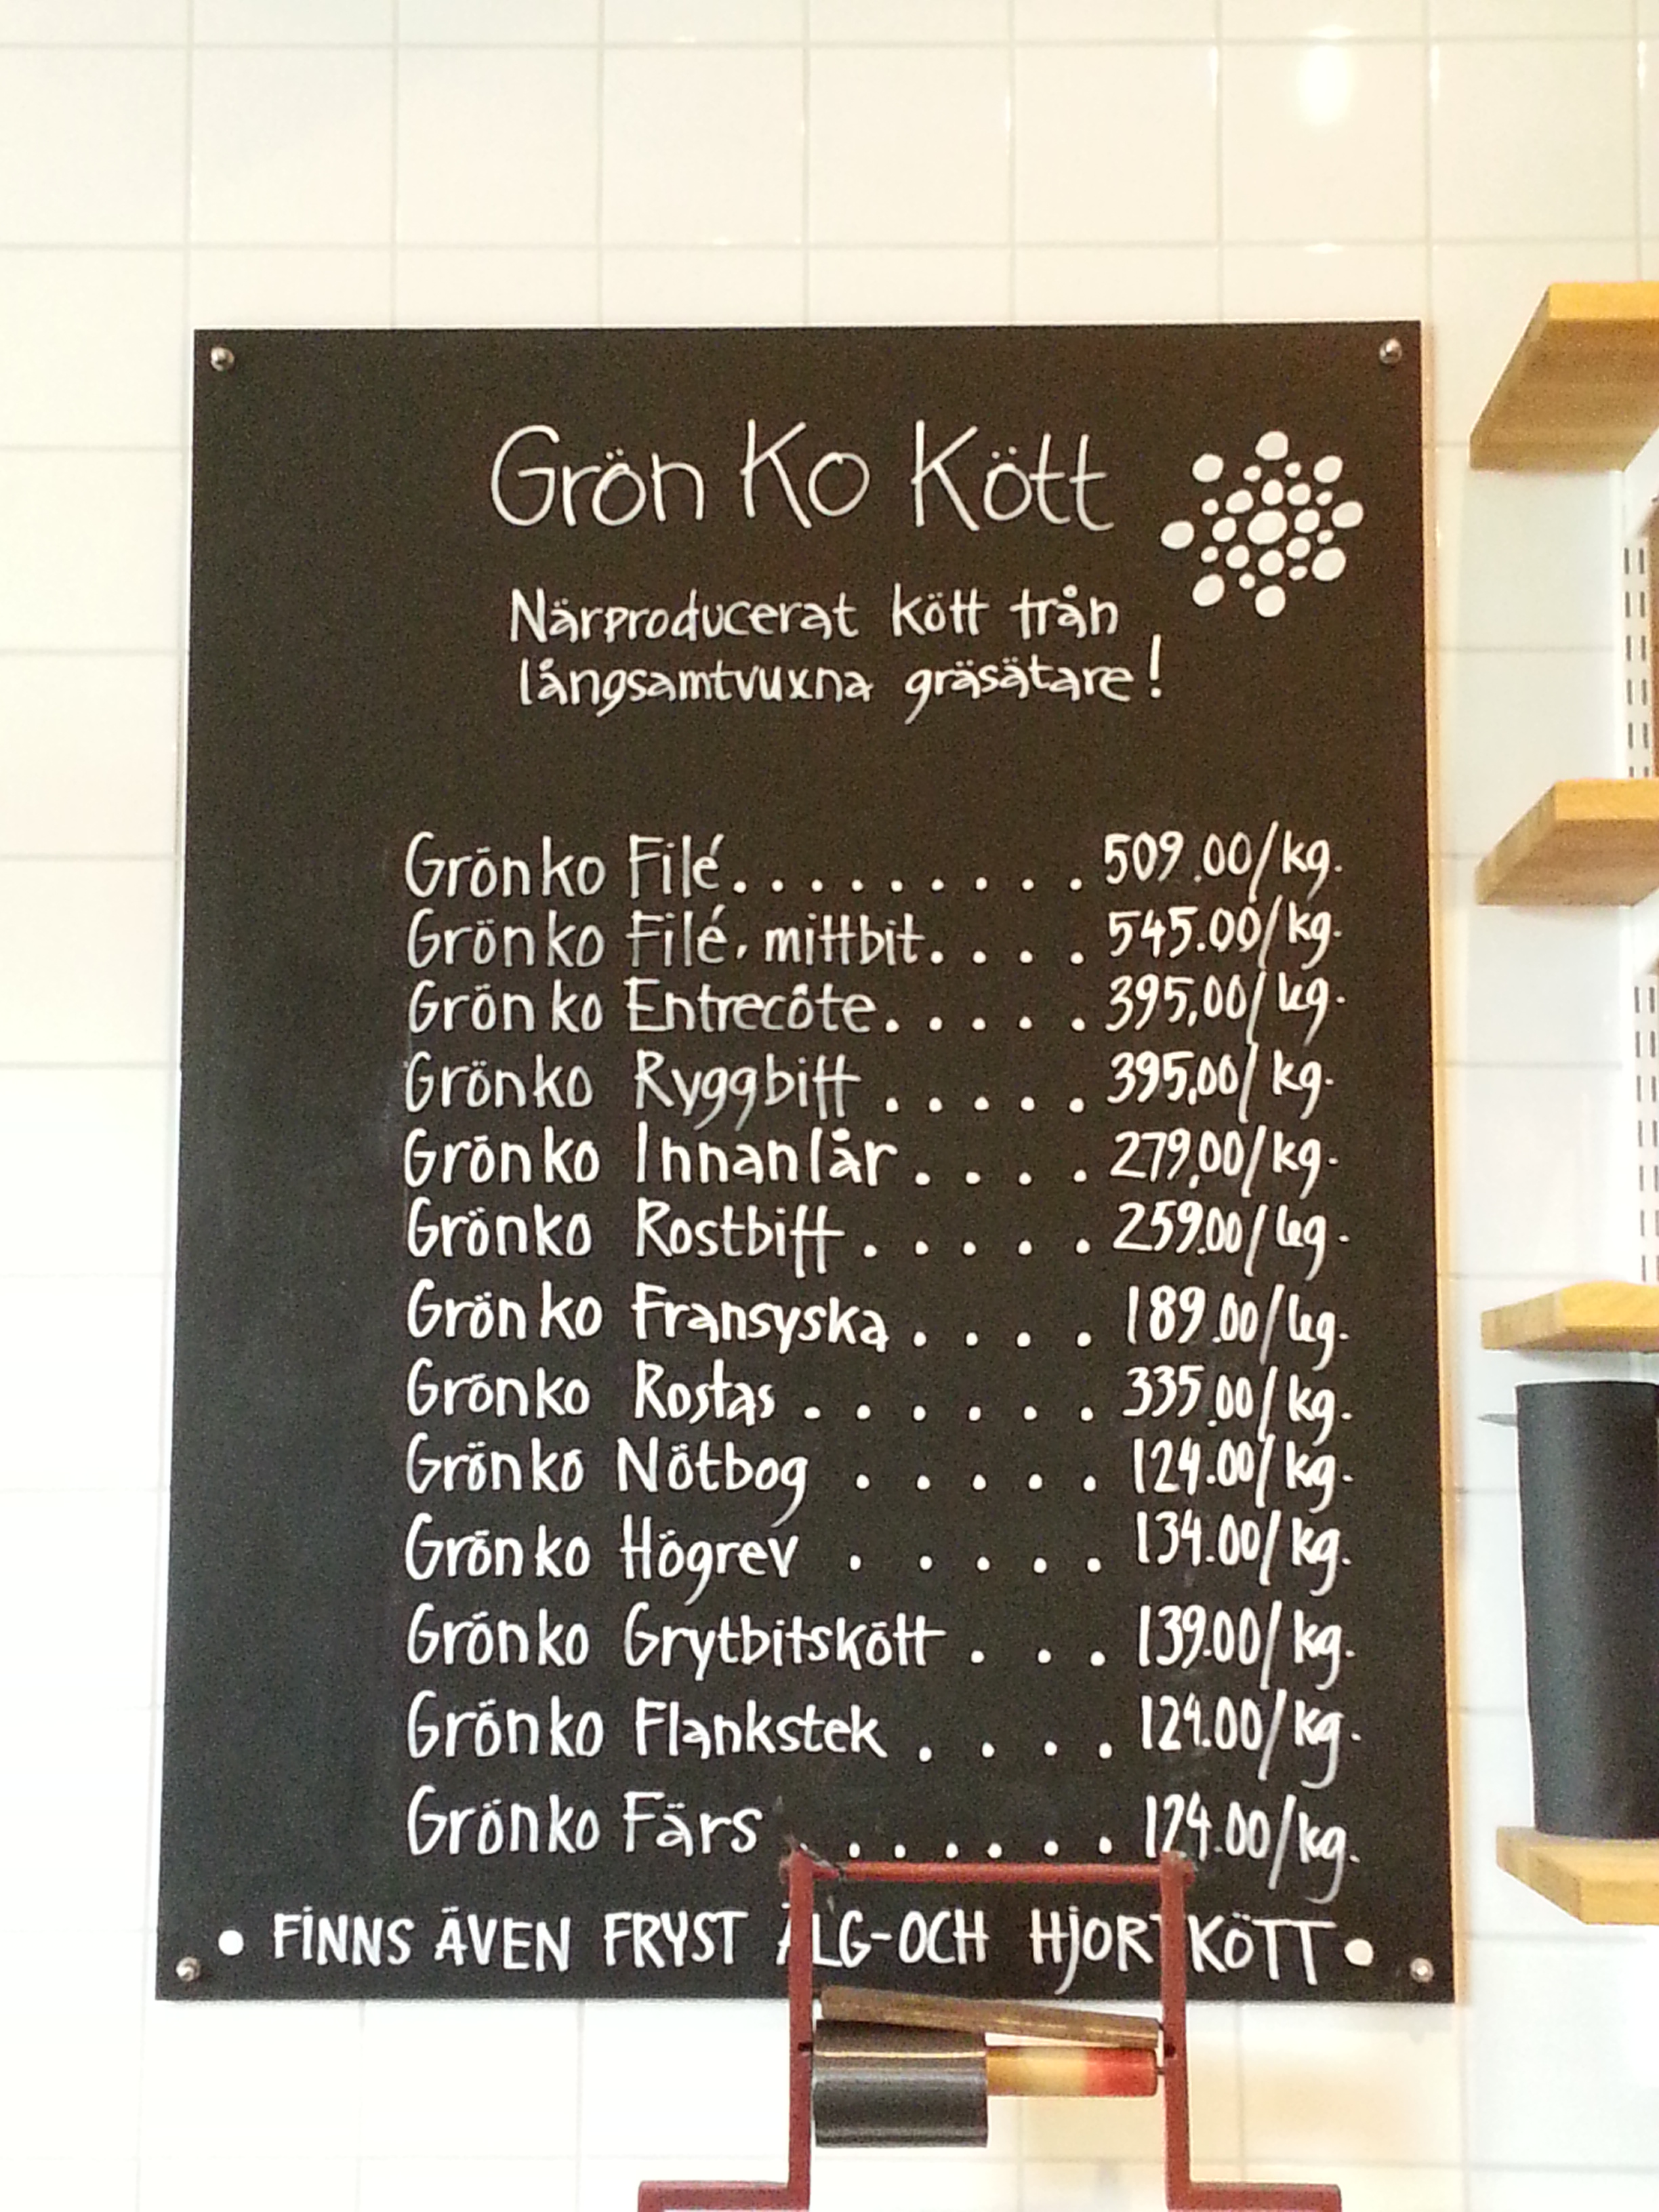 Grön Ko Kött
Närproducerat kött från
långsamtvuxna gräsätare!
Grönko Filé.......... 509.00/kg.
Grönko Filé, mittbit.... 545.00/kg.
Grönko Entrecôte..... 395,00/kg.
Grönko Ryggbiff..... 395,00/kg.
Grönko Innanlår.... 279,00/kg.
Grönko Rostbiff..... 259.00/kg.
Grönko Fransyska.... 189.00/kg.
Grönko Rostas...... 335.00/kg.
Grönko Nötbog..... 124.00/kg.
Grönko Högrev..... 134.00/kg.
Grönko Grytbitskött... 139.00/kg.
Grönko Flankstek.... 124.00/kg.
Grönko Färs...... 124.00/kg.
• FINNS ÄVEN FRYST ÄLG-OCH HJORTKÖTT •